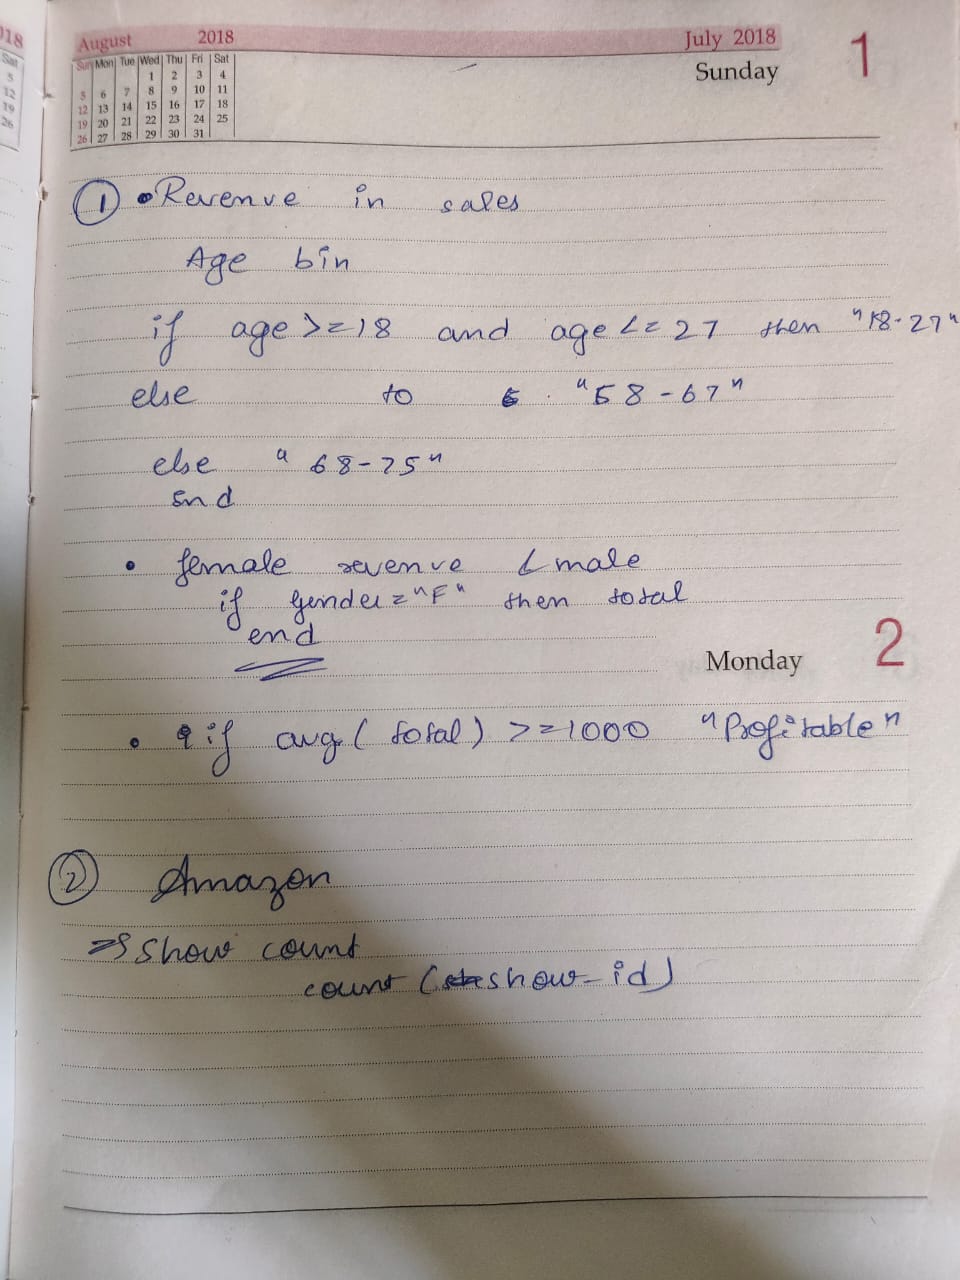 018
Sat
5
12
19
26
August 2018
Sun Mon Tue Wed Thu Fri Sat
1 2 3 4
5 6 7 8 9 10 11
12 13 14 15 16 17 18
19 20 21 22 23 24 25
26 27 28 29 30 31
July 2018
Sunday
1
① • Revenue in sales
Age bin
if age >=18 and age <= 27 then "18-27"
else to "58-67"
else "68-75"
End
• female revenue < male
if Gender = "F" then total
end
Monday
2
• if avg( total) >=1000 "Profitable"
② Amazon
=> Show count
count (show_id)